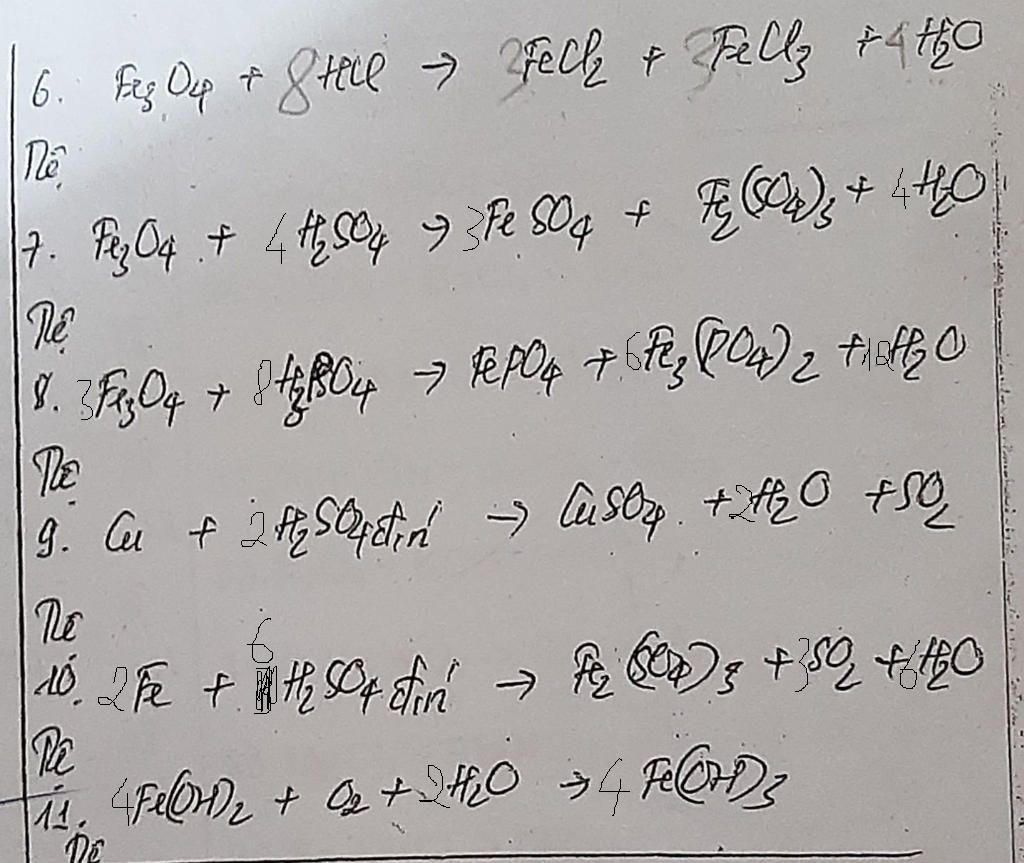 6. Fe₃O₄ + 8HCl → 3FeCl₂ + 3FeCl₃ + 4H₂O
Tỉ lệ
7. Fe₃O₄ + 4H₂SO₄ → 3FeSO₄ + Fe₂(SO₄)₃ + 4H₂O
Tỉ lệ
8. 3Fe₃O₄ + 8H₃PO₄ → FePO₄ + 6Fe₃(PO₄)₂ + 12H₂O
Tỉ lệ
9. Cu + 2H₂SO₄ → CuSO₄ + 2H₂O + SO₂
10. 2Fe + 6H₂SO₄ → Fe₂(SO₄)₃ + 3SO₂ + 6H₂O
11. 4Fe(OH)₂ + O₂ + 2H₂O → 4Fe(OH)₃